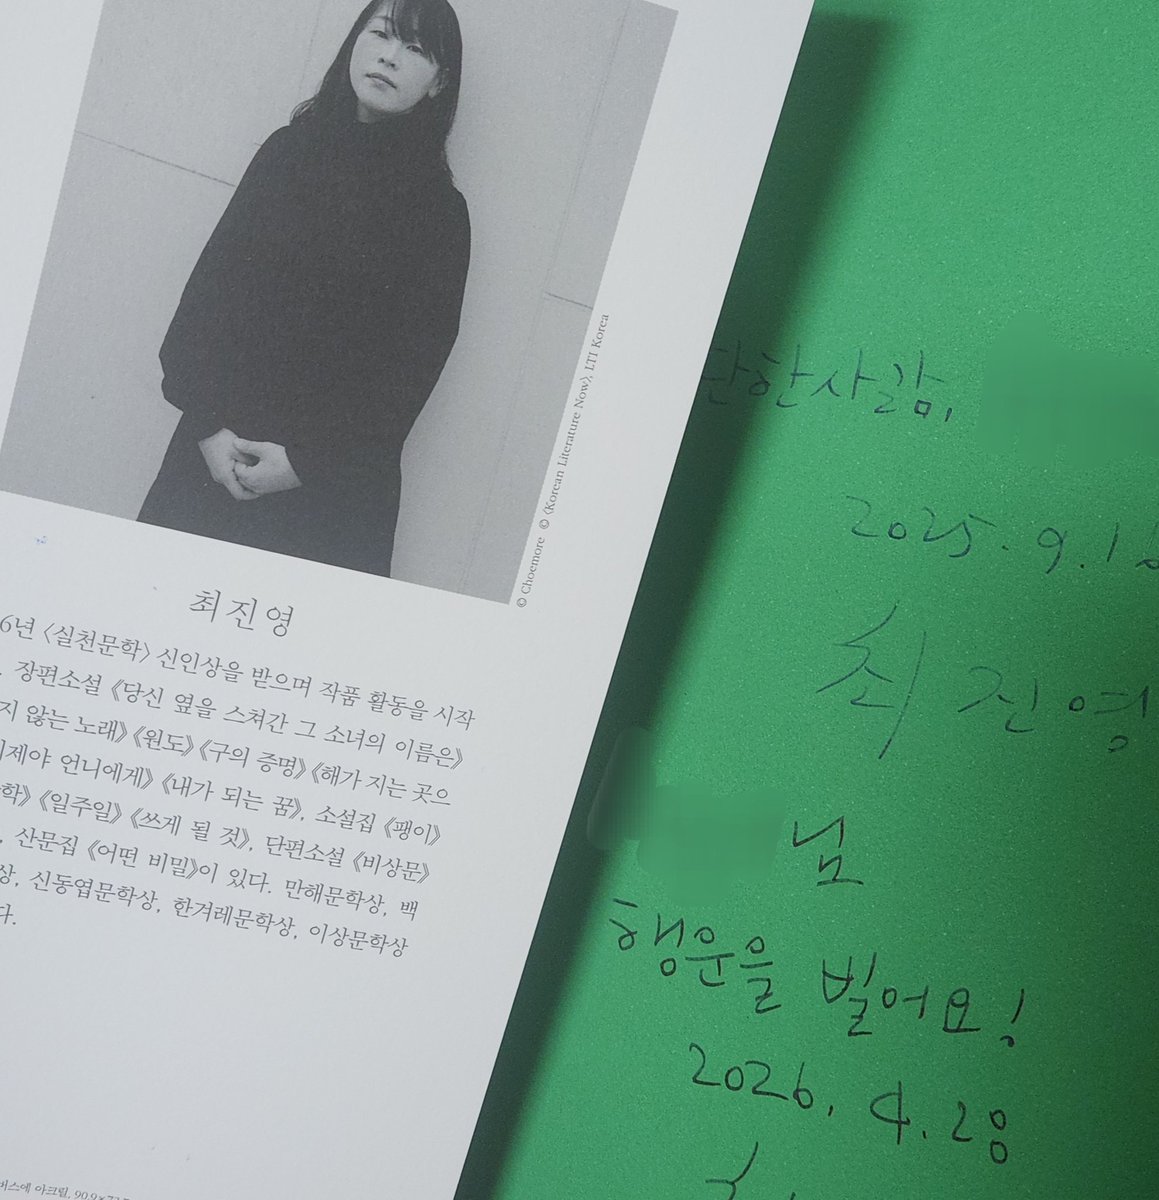 © Choemore © 〈Korean Literature Now〉, LTI Korea
최진영
6년 〈실천문학〉 신인상을 받으며 작품 활동을 시작
. 장편소설 《당신 옆을 스쳐간 그 소녀의 이름은》
지 않는 노래》 《원도》 《구의 증명》 《해가 지는 곳으
이제야 언니에게》 《내가 되는 꿈》, 소설집 《팽이》
학》 《일주일》 《쓰게 될 것》, 단편소설 《비상문》
, 산문집 《어떤 비밀》이 있다. 만해문학상, 백
상, 신동엽문학상, 한겨레문학상, 이상문학상
다.
버스에 아크릴, 90.9×72
단 한 사람,
2025. 9. 1
최진영
님
행운을 빌어요!
2026. 4. 28